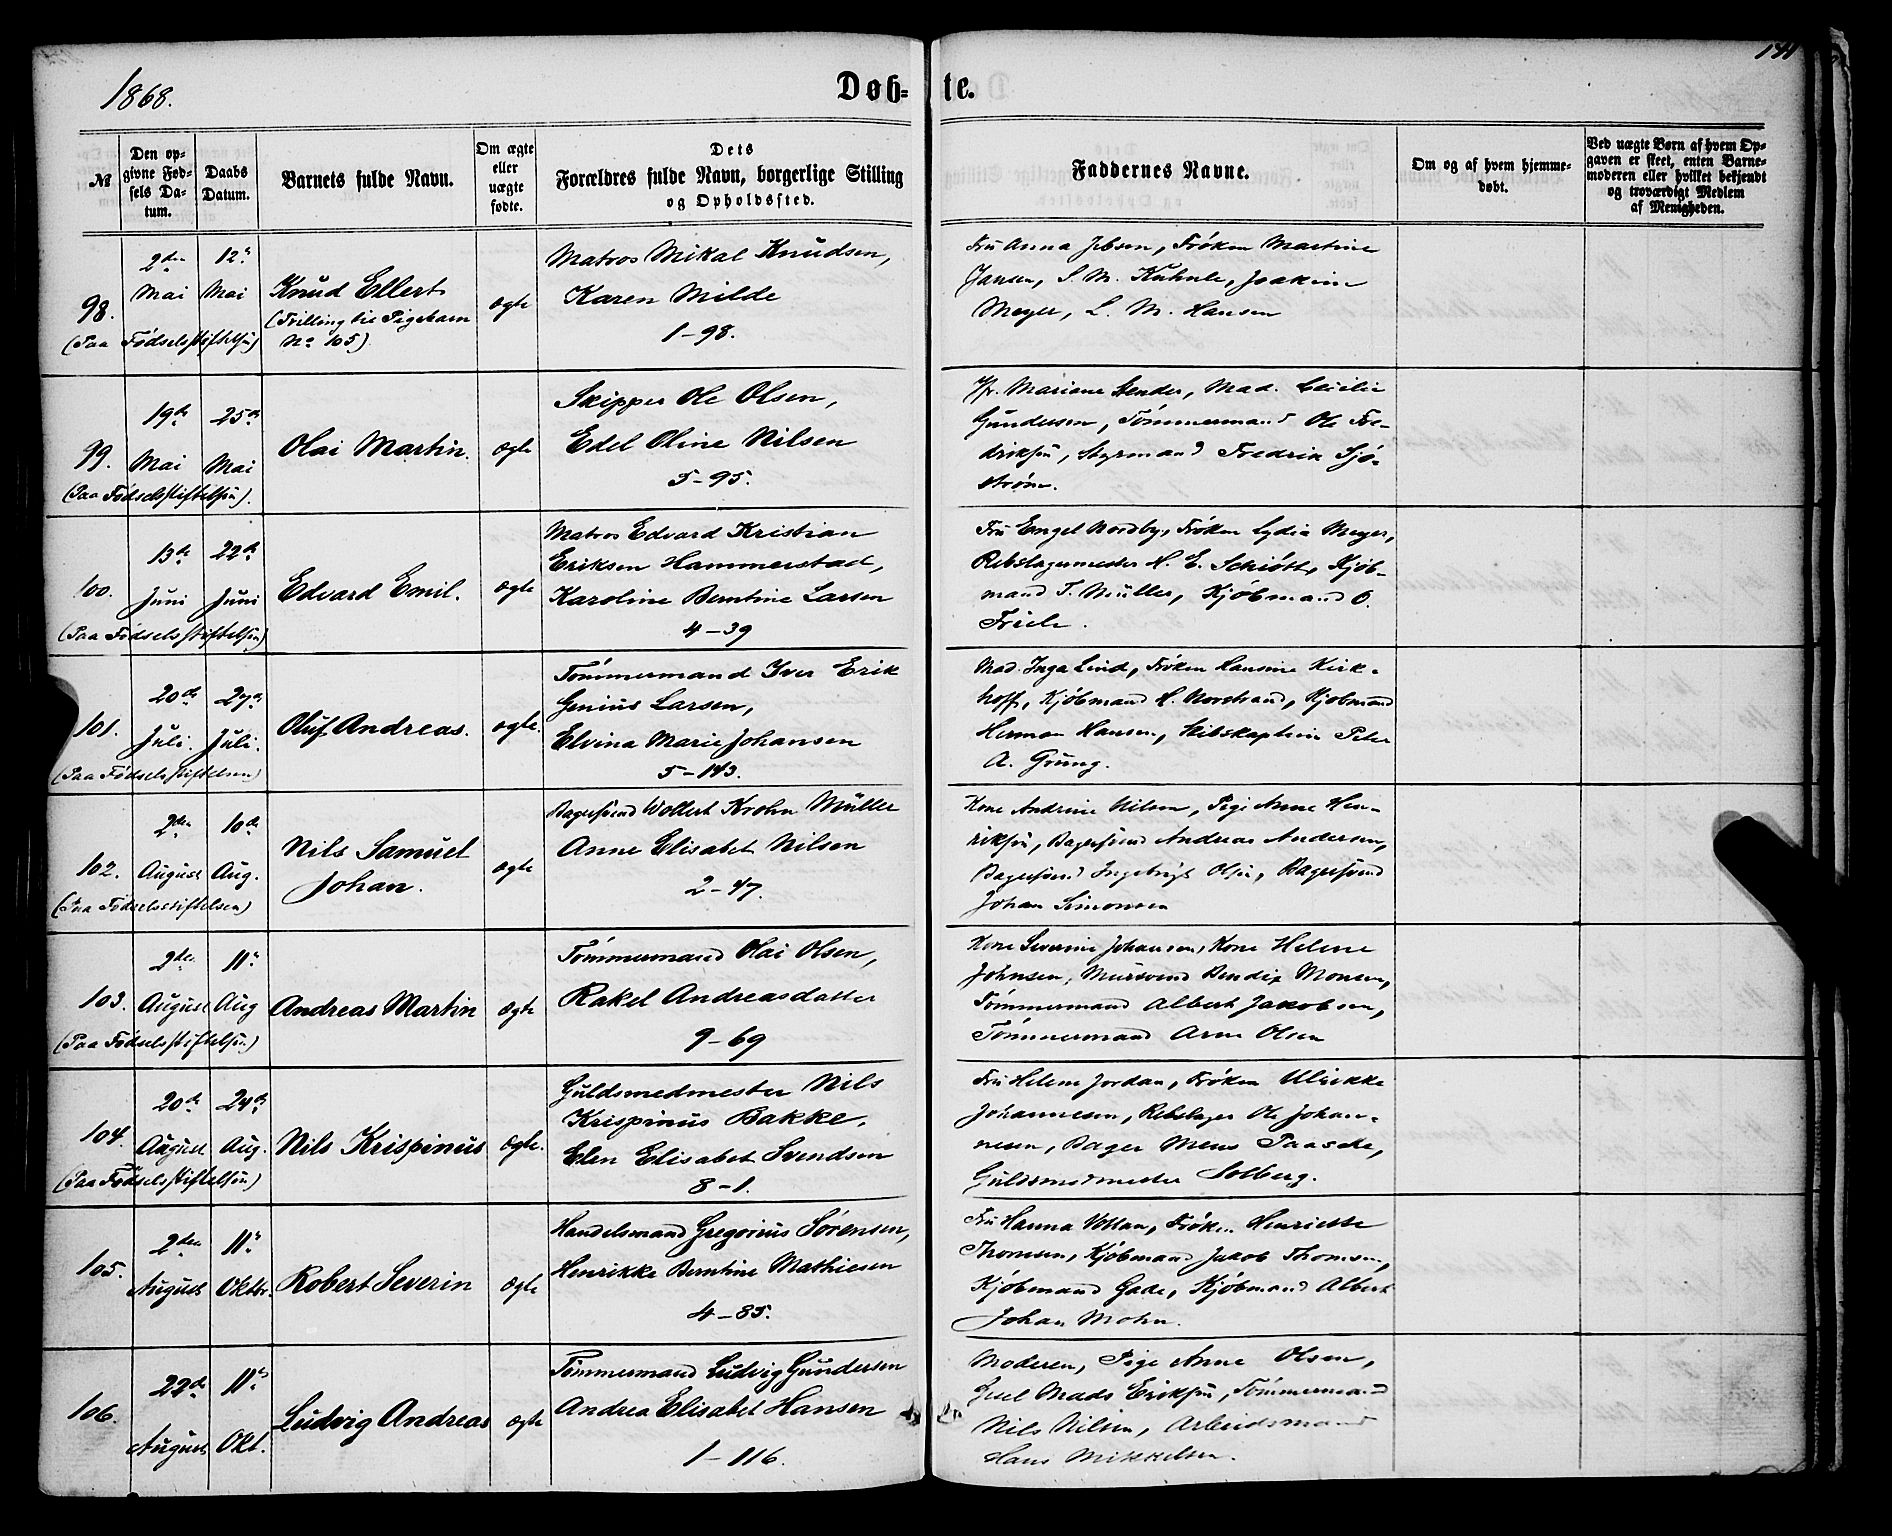 1868.
Døb-te.
№
Den op-
givne Fød-
sels Da-
tum.
Daabs
Datum.
Barnets fulde Navn.
Om ægte
eller
uægte
fødte.
Dets
Forældres fulde Navn, borgerlige Stilling
og Opholdssted.
Faddernes Navne.
Om og af hvem hjemme-
døbt.
Ved uægte Børn af hvem Op-
gaven er skeet, enten Barne-
moderen eller hvilket bekjendt
og troværdigt Medlem
af Menigheden.
98.
2den
Mai
12te
Mai
(Paa Fødselsstiftelsen)
Knud Ellert
(Tvilling til Pigebarn
No 105)
ægte
Matros Mikal Knudsen,
Karen Milde
1-98.
Fru Anna Jebsen, Frøken Martine
Jansen, S. M. Kuhnle, Joakim
Meyer, L. M. Hansen
99.
19de
Mai
25de
Mai
(Paa Fødselsstiftelsen).
Olai Martin.
ægte
Skipper Ole Olsen,
Edel Oline Nilsen
5-95.
Jfr. Mariane Stender, Mad. Cecilie
Gundersen, Tømmermand Ole Fre-
driksen, Styrmand Fredrik Sjø-
strøm.
100.
13de
Juni
22de
Juni
(Paa Fødselsstiftelsen)
Edvard Emil.
ægte
Matros Edvard Kristian
Eriksen Hammerstad,
Karoline Berntine Larsen
4-39
Fru Engel Nordby, Frøken Lydia Meyer,
Rebslagermester H. E. Schiøtt, Kjøb-
mand T. Müller, Kjøbmand O.
Friele.
101.
20de
Juli.
27de
Juli.
(Paa Fødselsstiftelsen)
Oluf Andreas.
ægte.
Tømmermand Iver Erik
Genius Larsen,
Elvina Marie Johansen
5-143.
Mad. Inga Lind, Frøken Hansine Kirk-
hoff, Kjøbmand H. Norstrand, Kjøbmand
Herman Hansen, Skibskaptein Peter
A. Grung.
102.
2den
August
10de
Aug.
(Paa Fødselsstiftelsen)
Nils Samuel
Johan.
ægte
Bagersvend Wollert Krohn Müller
Anne Elisabet Nilsen
2-47.
Kone Andrine Nilsen, Pige Anne Hen-
riksen, Bagersvend Andreas Andersen,
Bagersvend Ingebrigt Olsen, Bagersvend
Johan Simonsen
103.
2den
August
11te
Aug
(Paa Fødselsstiftelsen)
Andreas Martin
ægte
Tømmermand Olai Olsen,
Rakel Andreasdatter
9-69
Kone Severine Johansen, Kone Helene
Johnsen, Mursvend Bendix Monsen,
Tømmermand Albert Jakobsen,
Tømmermand Arne Olsen
104.
20de
August
24de
Aug.
(Paa Fødselsstiftelsen)
Nils Krispinus
ægte.
Guldsmedmester Nils
Krispinus Bakke,
Elen Elisabet Svendsen
8-1.
Fru Helene Jordan, Frøken Ulrikke
Johannesen, Rebslager Ole Johan-
nesen, Bager Mens Paasche,
Guldsmedmester Solberg.
105.
2den
August
11te
Oktbr.
Robert Severin
ægte
Handelsmand Gregorius Sørensen,
Henrikke Berntine Mathiesen
4-85.
Fru Hanna Voltan, Frøken Henriette
Thomsen, Kjøbmand Jakob Thomsen,
Kjøbmand Gade, Kjøbmand Albert
Johan Mohn.
106.
22de
August
11te
Okt.
Ludvig Andreas
ægte
Tømmermand Ludvig Gundersen
Andrea Elisabet Hansen
1-116.
Moderen, Pige Anne Olsen,
Mads Eriksen, Tømmermand
Nils Nilsen, Arbeidsmand
Hans Mikkelsen.